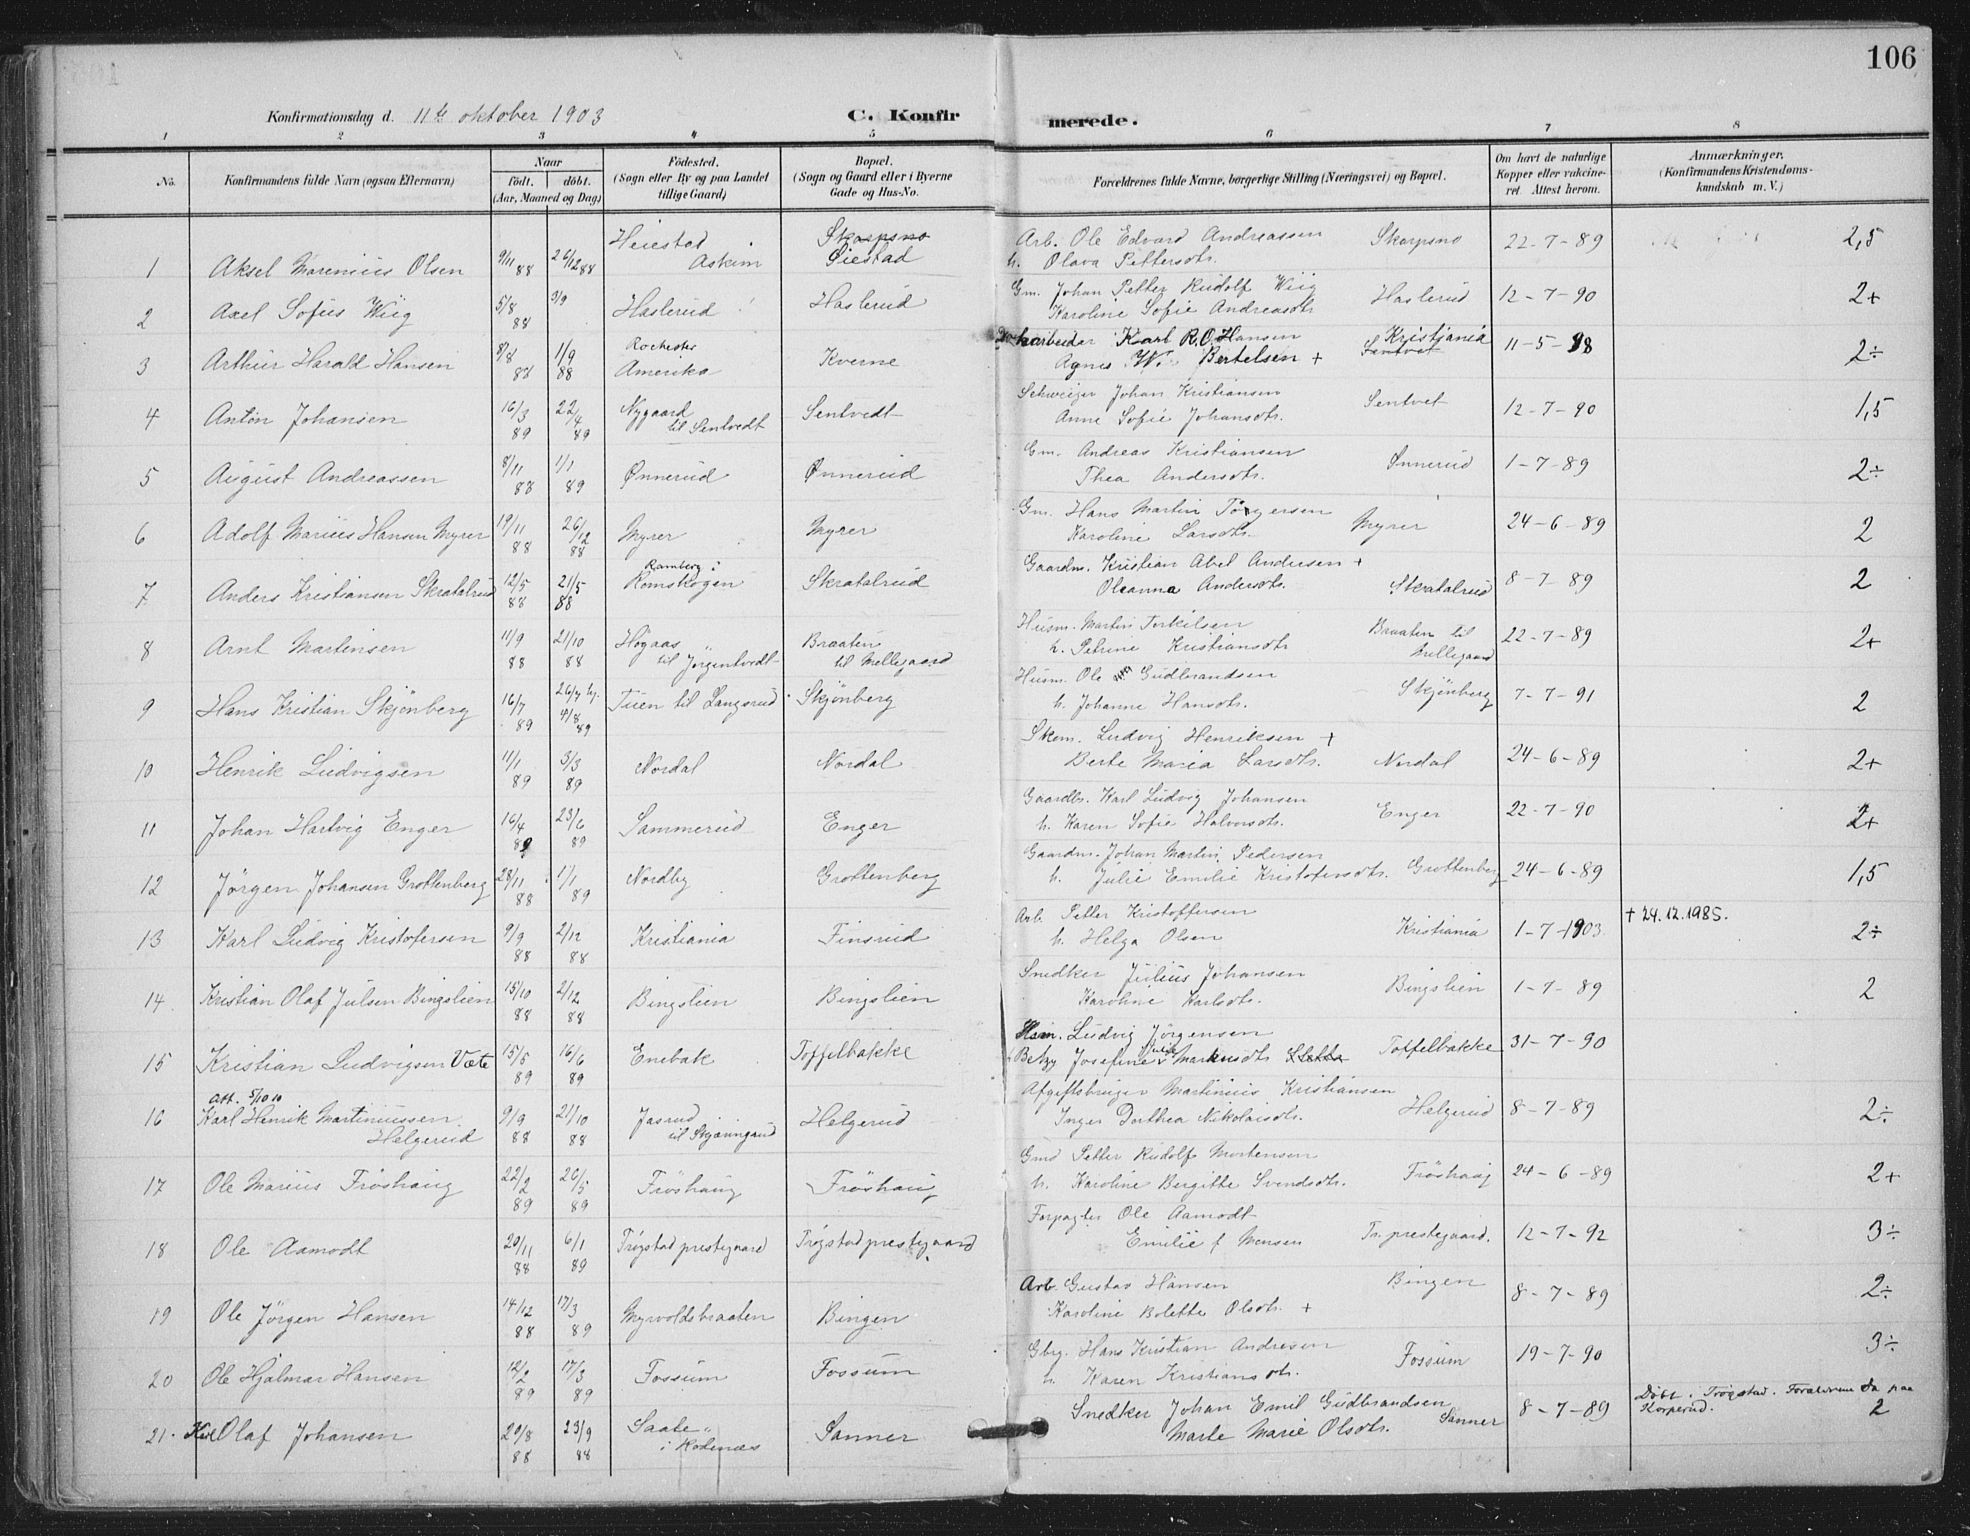 106
Konfirmationsdag d. 11te oktober 1903 C. Konfirmerede.
1 2 3 4 5 6 7 8
No. Konfirmandens fulde Navn (ogsaa Efternavn) Naar født. døbt. (Aar, Maaned og Dag) Fødested. (Sogn eller By og paa Landet tillige Gaard) Bopæl. (Sogn og Gaard eller i Byerne Gade og Hus-No. Forældrenes fulde Navne, borgerlige Stilling (Næringsvei) og Bopæl. Om havt de naturlige Kopper eller vakcineret. Attest herom. Anmærkninger, (Konfirmandens Kristendomskundskab m. V.)
1 Aksel Marenius Olsen 9/11 88 26/12 88 Heiestad Askim Skorpsno Siestad Arb. Ole Edvard Andreassen h. Olava Pettersdtr. Skorpsno 22-7-89 2,5
2 Axel Sofus Wiig 5/8 88 9/9 Haslerud Haslerud Gm. Johan Petter Rudolf Wiig Karoline Sofie Andreasdtr Haslerud 12-7-90 2+
3 Arthur Harald Hansen 8/8 87 1/9 88 Rochester Amerika Kverne Karl R. O. Hansen Agnes W. Bertelsen + Kristiania Sentvet 11-5-98 2÷
4 Anton Johansen 16/3 89 22/4 89 Nygaard til Sentvedt Sentvedt Schweizer Johan Kristiansen Anne Sofie Johansdtr. Sentvet 12-7-90 1,5
5 August Andreassen 8/11 88 1/1 89 Ønnerud Ønnerud Gm. Andreas Kristiansen Thea Andersdtr. Ønnerud 1-7-89 2÷
6 Adolf Marius Hansen Myrer 19/11 88 26/12 88 Myrer Myrer Gm. Hans Martin Torgersen Karoline Larsdtr. Myrer 24-6-89 2
7 Anders Kristiansen Skratalrud 12/5 88 21/5 88 Ramberg i Romskogen Skratalrud Gaardm. Kristian Abel Andersen + Oleanna Andersdtr. Skratalrud 8-7-89 2
8 Arnt Martinsen 11/9 88 21/10 88 Høgaas til Jørgentvedt Braaten til Mellegaard Husm. Martin Torkilsen h. Petrine Kristiansdtr Braaten til Mellegaard 22-7-89 2+
9 Hans Kristian Skjønberg 16/7 89 26/7 hj. 4/8 89 Tuen til Langsrud Skjønberg Husm. Ole Gudbrandsen h. Johanne Hansdtr. Skjønberg 7-7-91 2
10 Henrik Ludvigsen 11/1 89 3/3 89 Nordal Nordal Skom. Ludvig Henriksen + Berte Maria Larsdtr. Nordal 24-6-89 2+
11 Johan Hartvig Enger 16/4 89 23/6 89 Sammerud Enger Gaardbr. Karl Ludvig Johansen h. Karen Sofie Halvorsdtr. Enger 22-7-90 2+
12 Jørgen Johansen Grottenberg 28/11 88 1/1 89 Nordby Grottenberg Gaardm. Johan Martin Pedersen h. Julie Emilie Kristofersdtr. Grottenberg 24-6-89 1,5
13 Karl Ludvig Kristofersen 9/9 88 2/12 88 Kristiania Finsrud Arb. Petter Kristoffersen h. Helga Olsen Kristiania 1-7-1903 + 24.12.1985. 2÷
14 Kristian Olaf Julsen Bingslien 15/10 88 2/12 88 Bingslien Bingslien Snedker Julius Johansen Karoline Karlsdtr. Bingslien 1-7-89 2
15 Kristian Ludvigsen Væte 15/5 89 16/6 89 Enebak Toffelbakke Ludvig Jørgensen Betzy Josefine Markusdtr Sletta Toffelbakke 31-7-90
16 att. 5/10 10 Karl Henrik Martinussen Helgerud 9/9 88 21/10 88 Jasrud til Skjæringrud Helgerud Afgiftsbruger Martinius Kristiansen Inger Dorthea Nikolaisdtr. Helgerud 8-7-89 2÷
17 Ole Marius Frøshaug 22/2 89 26/5 89 Frøshaug Frøshaug Gmd Petter Rudolf Mortensen h. Karoline Bergitte Svendsdtr. Frøshaug 24-6-89 2+
18 Ole Aamodt 20/11 88 6/1 89 Trøgstad prestegaard Trøgstad prestegaard Forpagter Ole Aamodt Emilie f. Monsen Tr. prestegaard. 12-7-92 3÷
19 Ole Jørgen Hansen 14/12 88 17/3 89 Myrvoldsbraaten Bingen Arb. Gustav Hansen Karoline Bolette Olsdtr. + Bingen 8-7-89 2÷
20 Ole Hjalmar Hansen 12/2 89 17/3 89 Fossum Fossum Gbrg. Hans Kristian Andresen h. Karen Kristiansdtr. Fossum 19-7-90 3÷
21. Karl Olaf Johansen 20/8 88 23/9 88 Saate i Rødenæs Sanner Snedker Johan Emil Gudbrandsen Marte Marie Olsdtr. Sanner 8-7-89 Døbt i Trøgstad. Forældrene da paa Korperud. 2